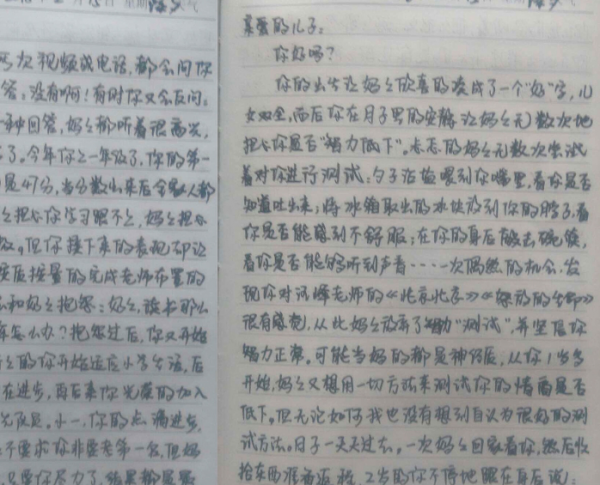 次视频或电话,都会问你
答,没有啊!有时你又会反问。
一种回答,妈妈都听着很高兴,
了。今年你上一年级了,你的第一
是47分,当分数出来后全家人都
担心你学习跟不上,妈妈担心
但你接下来的表现却让
质按量的完成老师布置的
和妈妈抱怨:妈妈,读书那么
怎么办?抱怨过后,你又开始
的你开始适应小学生活,后
在进步,再后来你光荣的加入
先队员。小一,你的点滴进步,
不要求你非要考第一名,但妈
只要你尽力了,结果都是最
亲爱的儿子:
你好吗?
你的出生让妈妈欣喜的凑成了一个"好"字,儿
女双全,而后你在月子里的安静让妈妈无数次地
担心你是否"智力低下"。忐忑的妈妈无数次尝试
着对你进行测试:勺子沾盐喂到你嘴里,看你是否
知道吐出来;将冰箱取出的冰块放到你的脖子,看
你是否能感到不舒服;在你的身后敲击碗筷,
看你是否能够听到声音……一次偶然的机会,发
现你对汪峰老师的《北京北京》《怒放的生命》
很有感觉,从此妈妈放弃了"测试",并坚信你
智力正常。可能当妈的都是神经质,从你1岁多
开始,妈妈又想用一切方法来测试你的情商是否
低下,但无论如何我也没有想到自认为很好的测
试方法。日子一天天过去,一次妈妈回家看你,然后收
拾东西准备返程,2岁的你不停地跟在身后说: